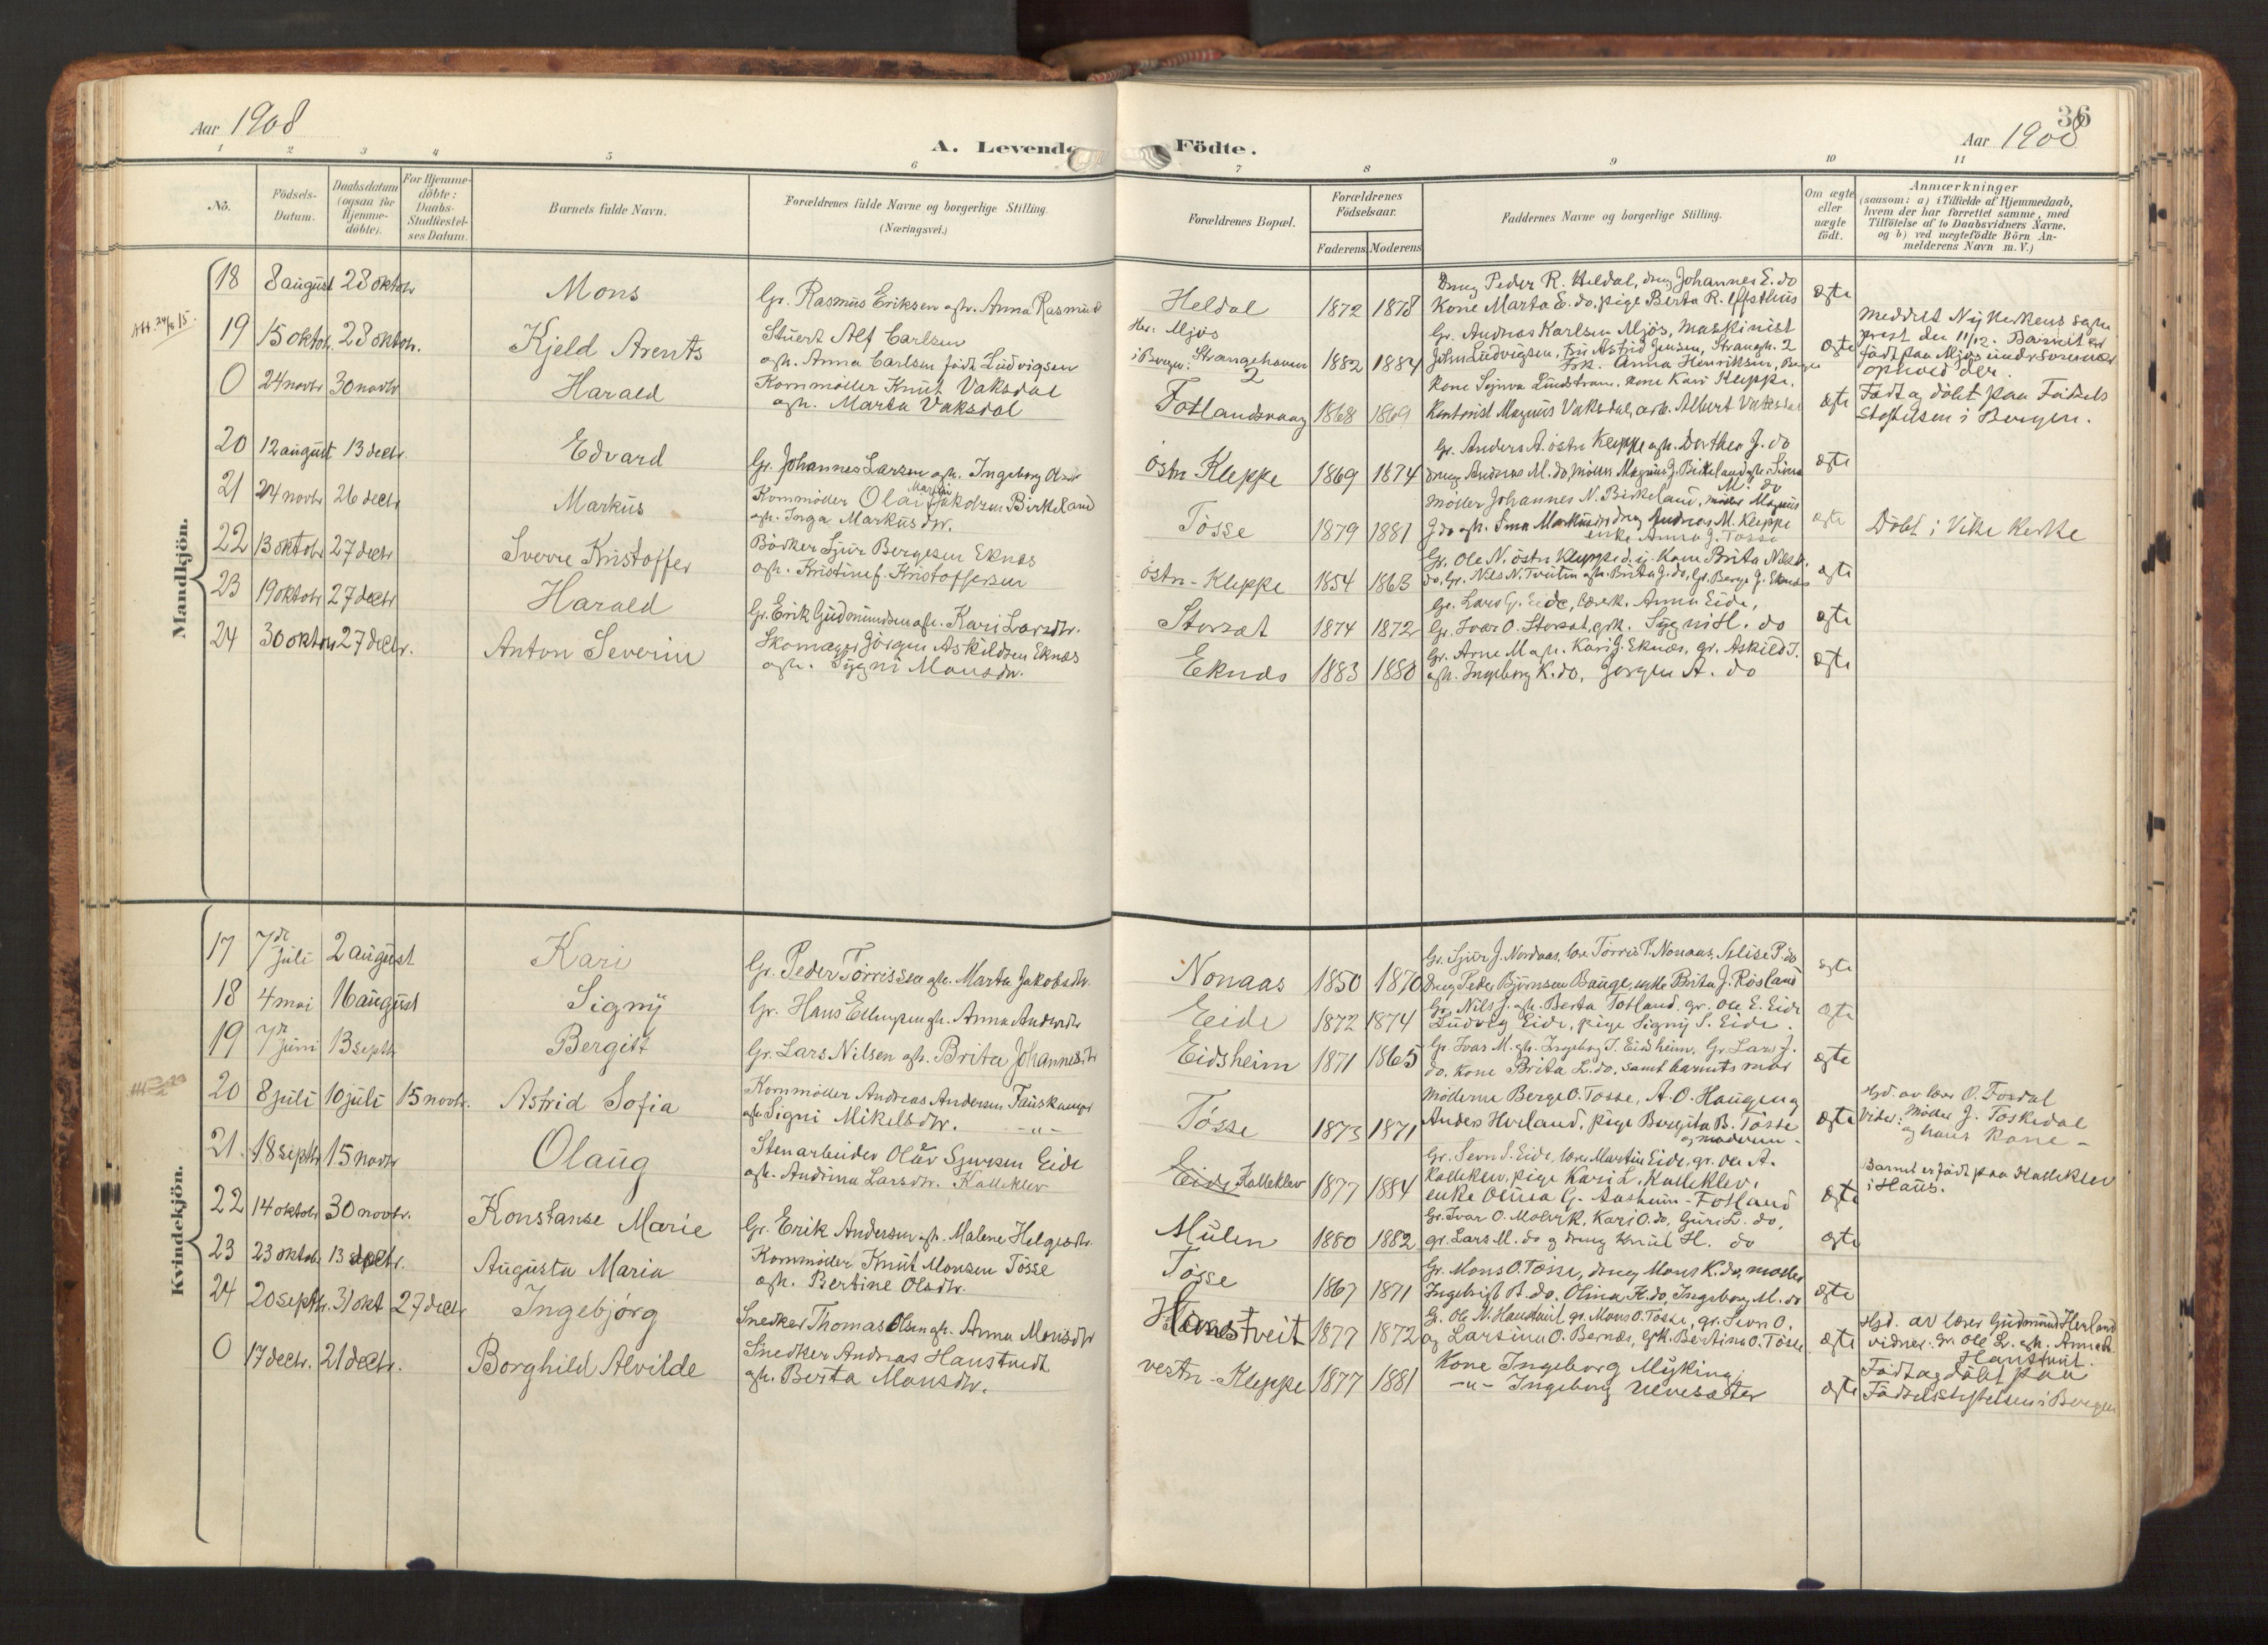 Aar 1908
A. Levende Födte.
36
Aar 1908
1 2 3 4 5 6 7 8 9 10 11
No.
Födsels-Datum.
Daabsdatum (ogsaa for Hjemme-döbte).
For Hjemme-döbte: Daabs-Stadfæstel-ses Datum.
Barnets fulde Navn.
Forældrenes fulde Navne og borgerlige Stilling.
(Næringsvei.)
Forældrenes Bopæl.
Forældrenes Födselsaar.
Faderens Moderens
Faddernes Navne og borgerlige Stilling.
Om ægte eller uægte födt.
Anmærkninger
(saasom: a) i Tilfælde af Hjemmedaab,
hvem der har forrettet samme, med
Tilföielse af to Daabsvidners Navne.
og b) ved uægtefödte Börn An-
melderens Navn m. V.)
Mandkjön.
18 8 august 28 oktobr Mons
Gr. Rasmus Eriksen og h. Anna Rasmusd
Heldal 1872 1878
Drug Peder R. Heldal, drug Johannes E. do
Kone Marta E. do, pige Berta R.
ægte
Att. 24/8 15.
19 15 oktobr. 28 oktobr. Kjeld Arents
Stuert Alf Carlsen
og h. Anna Carlsen födt Ludvigsen
Her: Mjös
i Bergen: Strangehaven 2
1882 1884
Gr. Andreas Karlsen Mjös, maskinist
John Ludvigsen, Fru Astrid Jensen, Strangh. 2
Frk. Anna Henriksen, Bergen
ægte
Meddelt Nykirkens sogne
prest den 11/12. Barnet er
födt paa Mjös under
ophold der.
0 24 novbr 30 novbr Harald
Kornmöller Knut Vaksdal
og h. Marta Vaksdal
Fotlandsvaag 1868 1869
Kone Synva Lindstrøm, kone Kari Kleppe,
Kontorist Magnus Vaksdal, arb. Albert Vaksdal
ægte
Födt og döbt paa Födsels
stiftelsen i Bergen.
20 12 august 13 decbr. Edvard
Gr. Johannes Larsen og h. Ingeborg
östn Kleppe 1869 1874
Gr. Anders A. östn Kleppe og h. Dorthea J. do
drug Andreas M. do, möller Magnus J. Birkeland og h. Sina
M. do
ægte
21 24 novbr 26 decbr Markus
Kornmöller Olai Martin Jakobsen Birkeland
og h. Inga Markusdtr.
Tösse 1879 1881
Möller Johannes N. Birkeland, möller Magnus
J. do og h. Sina Markusdtr, drug Andreas M. Kleppe
enke Anna J. Tösse
ægte
Döbt i Vike Kirke
22 13 oktobr 27 decbr Sverre Kristoffer
Bödker Sjur Bergesen Eknæs
og h. Kristine f. Kristoffersen
östn-Kleppe 1854 1863
Gr. Ole N. östn Kleppe d. y. Kone Brita Nilsd.
do, Gr. Nils N. Tveiten og h. Brita J. do, Gr. Berge J. Eknæs
ægte
23 19 oktobr 27 decbr Harald
Gr. Erik Gudmundsen og h. Kari Larsdtr.
Storsæt 1874 1872
Gr. Lars G. Eide, Anna Eide,
Gr. Ivar O. Storsæt, grk. Sygni H. do
ægte
24 30 oktobr 27 decbr. Anton Severin
Skomager Jörgen Askildsen Eknæs
og h. Sygni Monsdtr.
Eknæs 1883 1880
Gr. Arne M og h. Kari J. Eknæs, gr. Askild J.
og h. Ingeborg K. do, Jørgen A. do
ægte
Kvindekjön.
17 7de juli 2 august Kari
Gr. Peder Törrissen og h. Marta Jakobsdtr.
Nonaas 1850 1870
Gr. Sjur J. Nordaas, Törris P. Nonaas, Selise P. do
drug Peder Björnsen Bauge, enke Brita J. Rösland
ægte
18 4 mai 16 august Signy
Gr. Hans Ellingsen og h. Anna Andersdtr
Eide 1872 1874
Gr. Nils J. og h. Berta Totland, gr. Ole E. Eide
Ludvig Eide, pige Signy S. Eide.
ægte
19 7de juni 13 septbr Bergitt
Gr. Lars Nilsen og h. Brita Johannesdtr
Eidsheim 1871 1865
Gr. Ivar M. og h. Ingeborg J. Eidsheim, Gr. Lars J.
do, Kone Brita L. do, samt barnets mor
ægte
20 8 juli 10 juli 15 novbr. Astrid Sofia
Kornmöller Andreas Andersen Fauskanger
og h. Signi Mikelsdtr. -"-
Tösse 1873 1871
Möllerne Berge O. Tösse, A. O. Haugeng
Anders Herland, pige Bergita B. Tösse
og moderen-
ægte
Hjd. av lærer O. Fosdal
Vidner: Möller J. Toskedal
og hans Kone-
21. 18 septbr 15 novbr Olaug
Stenarbeider Olav Sjursen Eide
og h. Andrina Larsdtr. Kalleklev
Eide Kalleklev 1877 1884
Gr. Sevn S. Eide, lærer Martin Eide, gr. Ole A.
Kalleklev, pige Kari L. Kalleklev,
enke Olina G. Aasheim-Fotland
ægte
Barnet er födt paa Kalleklev
i Haus.
22 14 oktobr 30 novbr. Konstanse Marie
Gr. Erik Andersen og h. Malene Helgesdtr.
Mulen 1880 1882
Gr. Ivar O. Molvik, Kari O. do, Guri L. do,
gr. Lars M. do og drug Knut H. do
ægte
23 23 oktobr 13 decbr. Augusta Maria
Kornmöller Knut Monsen Tösse
og h. Bertine Olsdtr.
Tösse 1867 1871
Gr. Mons O. Tösse, drug Mons K. do, möller
Ingebrigt B. do, Olina K. do, Ingeborg M. do
ægte
24 20 septbr. 31 okt 27 decbr Ingebjörg
Snedker Thomas Olsen og h. Anna Monsdtr
Haustveit 1877 1872
Gr. Ole N. Haustveit, gr. Mons O. Tösse, gr. Sevn O.
og Larsina O. Bernæs, grk. Bertina O. Tösse
ægte
Hjd. av lærer Gudmund Herland
vidner: Gr. Ole L. og h. Anna
Haustveit.
0 17 decbr. 21 decbr. Borghild Alvilde
Snedker Andreas Haustvedt
og h. Berta Monsdtr.
vestn-Kleppe 1877 1881
Kone Ingeborg Myking,
-"- Ingeborg Ulvesæter
ægte
Födt og döbt paa
Födselsstiftelsen i Bergen